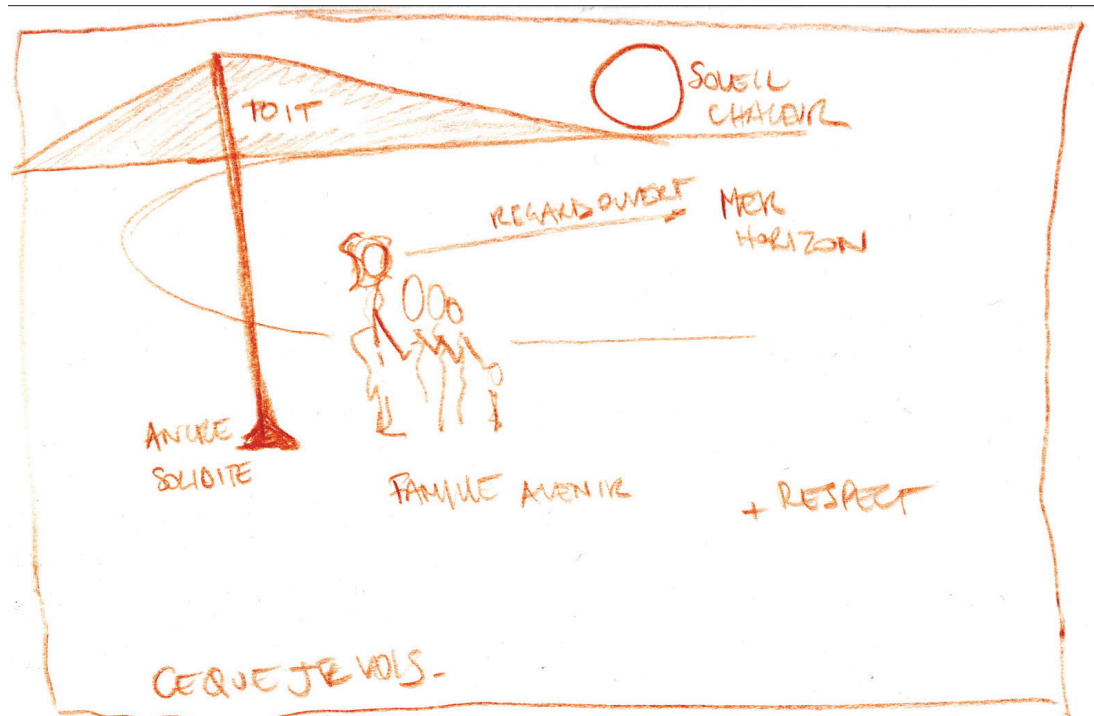 TOIT
SOLEIL
CHALEUR
REGARD OUVERT
MER
HORIZON
ANCRE
SOLIDITE
FAMILLE AVENIR
+ RESPECT
CE QUE JE VOIS-